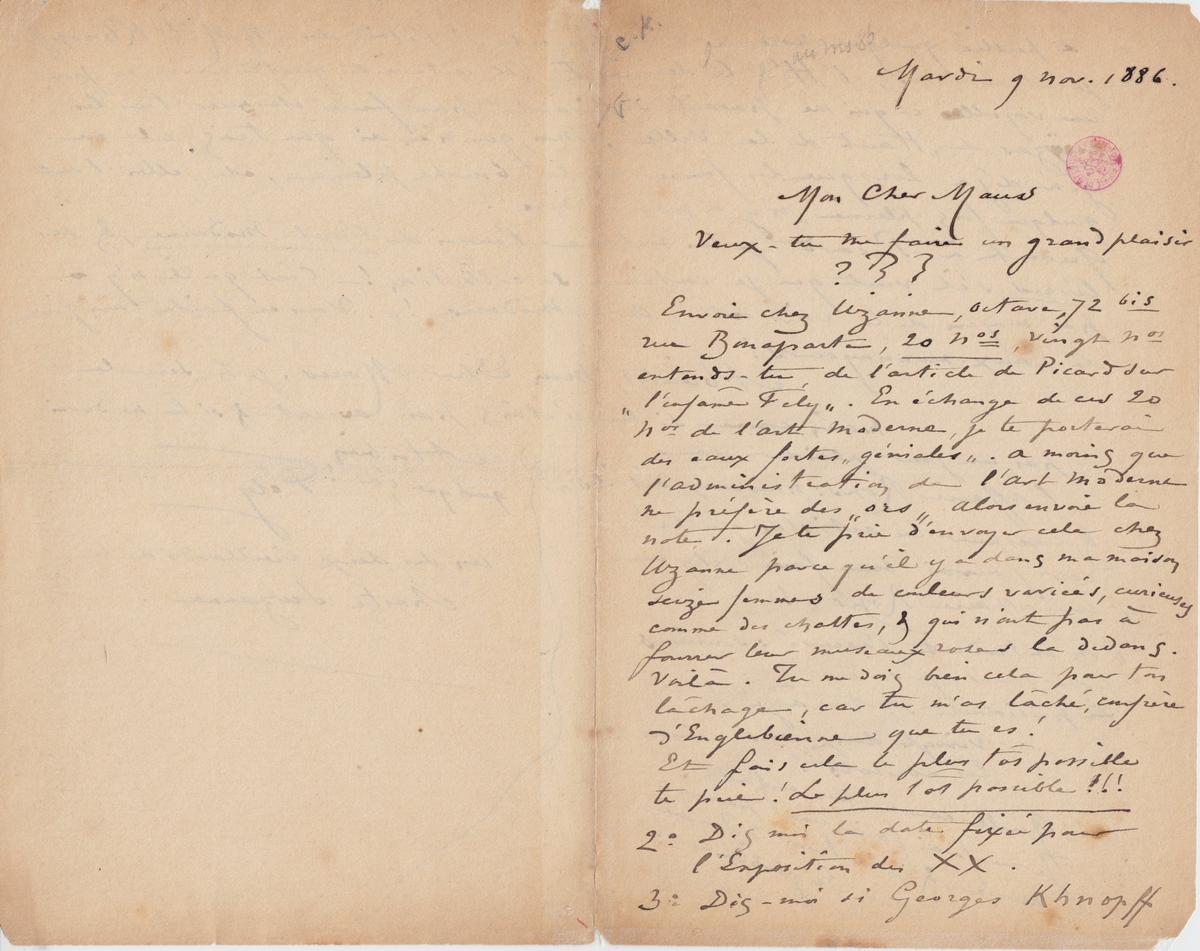 Mardi 9 nov. 1886.
Mon Cher Maus
Veux-tu me faire un grand plaisir
? ? ?
Envoie chez Uzanne, octave, 72 bis
rue Bonaparte, 20 nos, vingt nos
entends-tu, de l'article de Picard sur
"l'infâme Fély". En échange de ces 20
nos de l'art moderne, je te porterai
des eaux fortes "géniales". a moins que
l'administration de l'art moderne
ne préfère des "ors" alors envoie la
note. Je te prie d'envoyer cela chez
Uzanne parce qu'il y a dans ma maison
seize femmes de couleurs variées, curieuses
comme des chattes, & qui n'ont pas à
fourrer leur museaux roses la dedans.
Voilà. Tu me dois bien cela pour ton
lâchage, car tu m'as lâché, confrère
d'Englebienne que tu es!
Et fais cela le plus tôt possible
te prie! Le plus tôt possible!!!
2º Dis moi la date fixée pour
l'Exposition des XX.
3º Dis-moi si Georges Khnopff